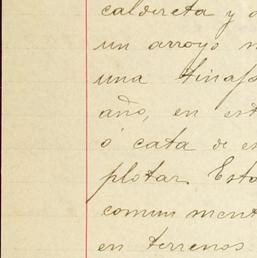 caldereta y
un arroyo
una
año, en
ó cata de
plotar. Est
comunment
en terrenos